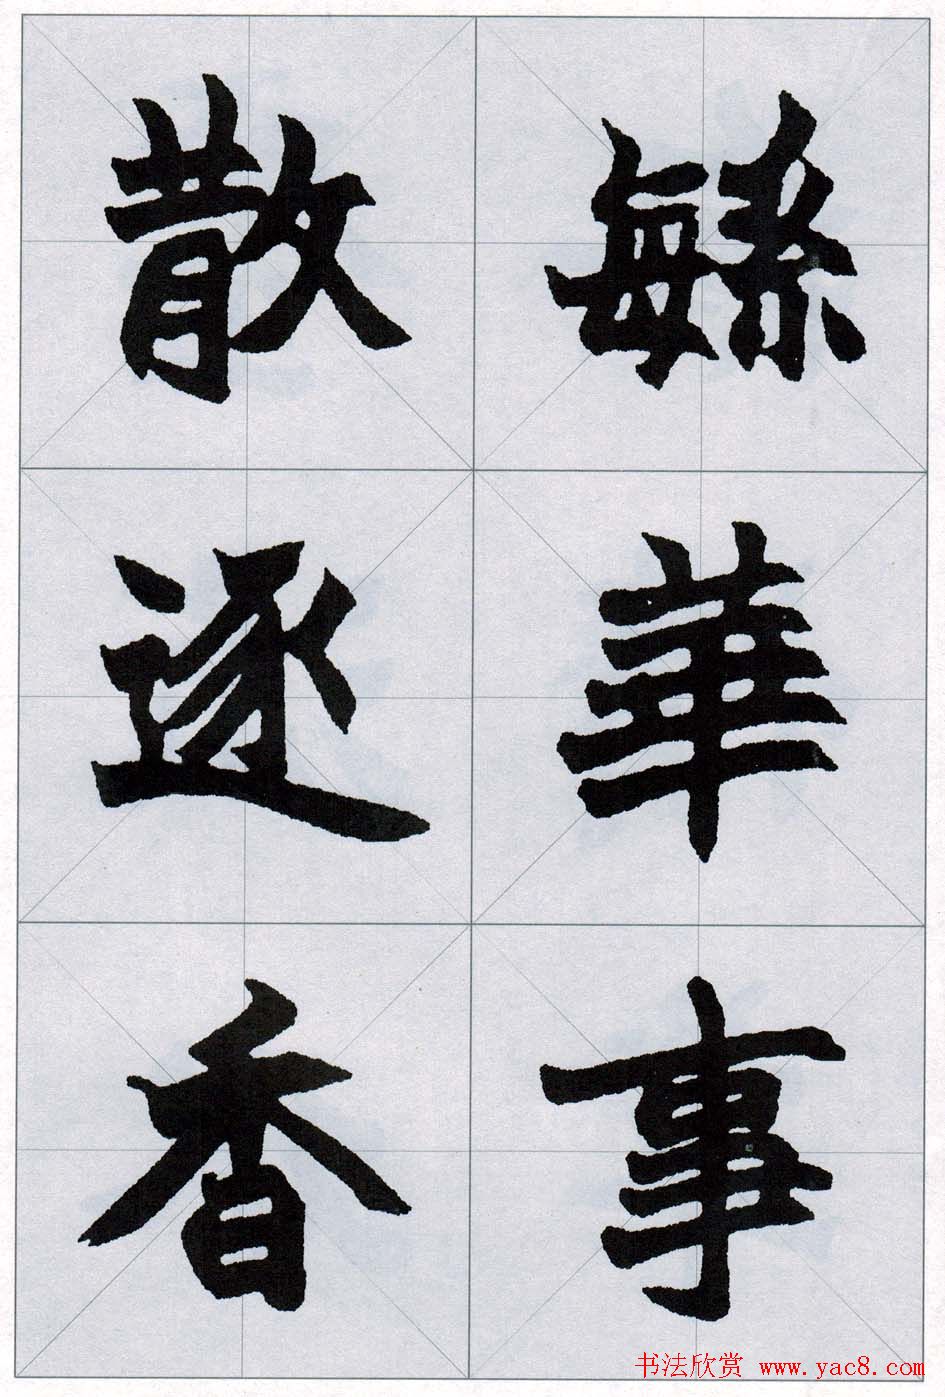 緐華事
散逐香
书法欣赏 www.yac8.com